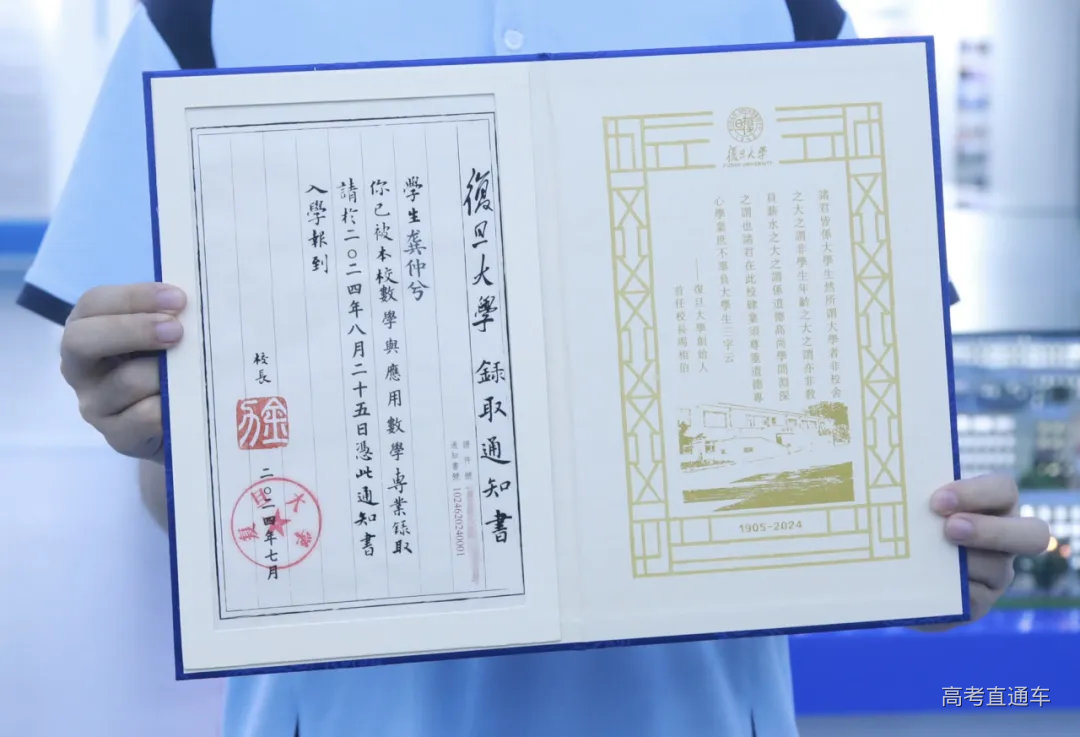 復旦大學 録取通知書
證件號
通知書號 1024620240001
學生龚仲兮
你已被本校數學與應用數學專業録取
請於二〇二四年八月二十五日憑此通知書
入學報到
校長
二〇二四年七月
復旦大學
復旦大學
FUDAN UNIVERSITY
諸君皆係大學生然所謂大學者非校舍
之大之謂非學生年齡之大之謂亦非教
員薪水之大之謂係道德高尚學問淵深
之謂也諸君在此校肄業須尊重道德專
心學業庶不辜負大學生三字云
——復旦大學創始人
首任校長馬相伯
1905-2024
高考直通车